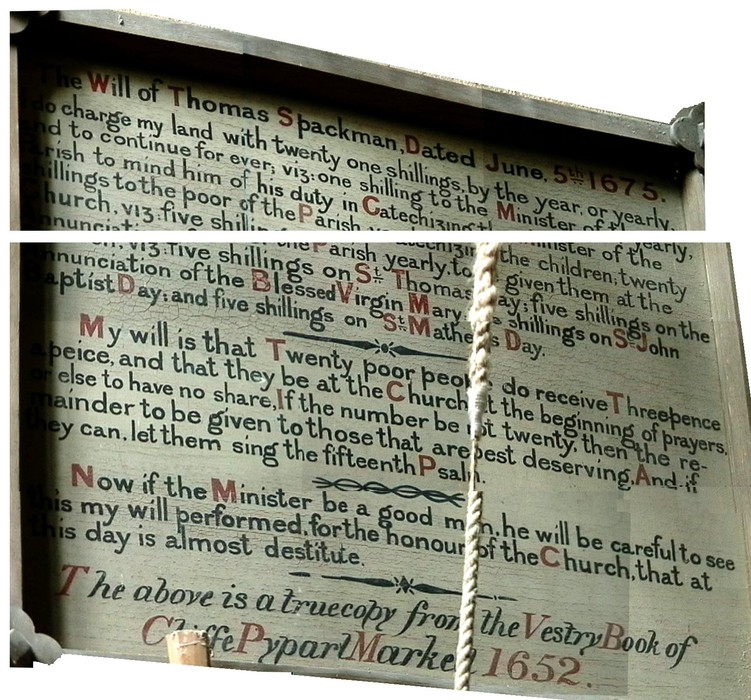 The Will of Thomas Spackman, Dated June, 5th 1675.
do charge my land with twenty one shillings, by the year, or yearly,
nd to continue for ever; viz: one shilling to the Minister of the
rish to mind him of his duty in Catechizing the children; twenty
hillings to the poor of the Parish yearly, to given them at the
hurch, viz: five shillings on St Thomas ay; five shillings on the
nnunciation of the Blessed Virgin Mary shillings on St John
Baptist Day; and five shillings on St Mathe s Day.
My will is that Twenty poor people do receive Threepence
apeice, and that they be at the Church at the beginning of prayers,
or else to have no share, If the number be not twenty, then the re-
mainder to be given to those that are best deserving, And if
they can, let them sing the fifteenth Psalm.
Now if the Minister be a good man, he will be careful to see
this my will performed, for the honour of the Church, that at
this day is almost destitute.
The above is a true copy from the Vestry Book of
Cliffe Pypard Market 1652.